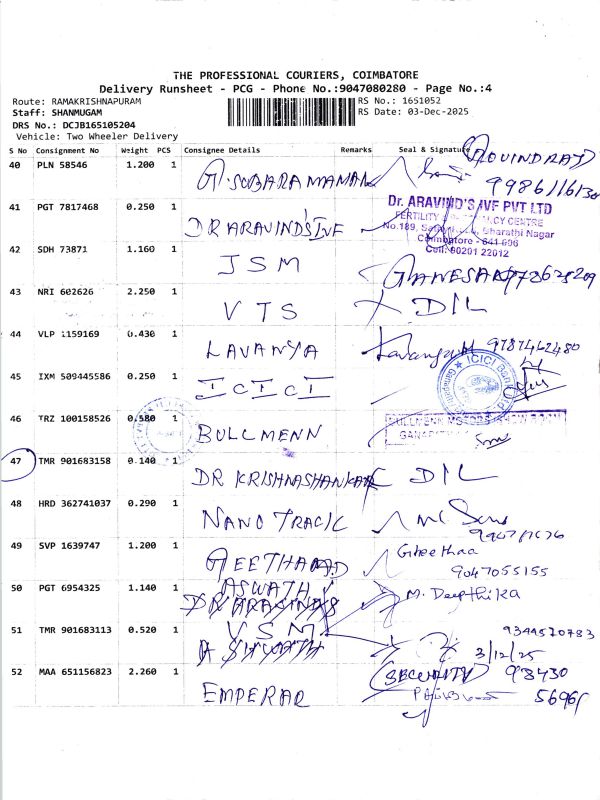 THE PROFESSIONAL COURIERS, COIMBATORE
Delivery Runsheet - PCG - Phone No.:9047080280 - Page No.:4
Route: RAMAKRISHNAPURAM RS No.: 1651052
Staff: SHANMUGAM RS Date: 03-Dec-2025
DRS No.: DCJB165105204
Vehicle: Two Wheeler Delivery
S No Consignment No Weight PCS Consignee Details Remarks Seal & Signature
GOVINDRAJ
40 PLN 58546 1.200 1 G. SUBARAMAMANI
41 PGT 7817468 0.250 1 DR ARAVIND'S IVF
Dr. ARAVIND'S IVF PVT LTD
FERTILITY CENTRE
No.189, Bharathi Nagar
Coimbatore - 641 006
Cell: 90201 22012
42 SDH 73871 1.160 1 JSM GANESAN
43 NRI 602626 2.250 1 VTS DIL
44 VLP 1159169 0.430 1 LAVANYA 9787462480
45 IXM 509445586 0.250 1 ICICI
ICICI Bank
46 TRZ 100158526 0.580 1 BULLMENN
47 TMR 901683158 0.140 1 DR KRISHNASHANKAR DIL
48 HRD 362741037 0.290 1 NANO TRACK
49 SVP 1639747 1.200 1 GEETHA Gheethaa
9047055155
50 PGT 6954325 1.140 1 ASWATH M. Deepthika
DR ARAVINDS
51 TMR 901683113 0.520 1 VSM 9344520783
ASHWATH 3/12/25
52 MAA 651156823 2.260 1 EMPERAR (SECURITY) 98430